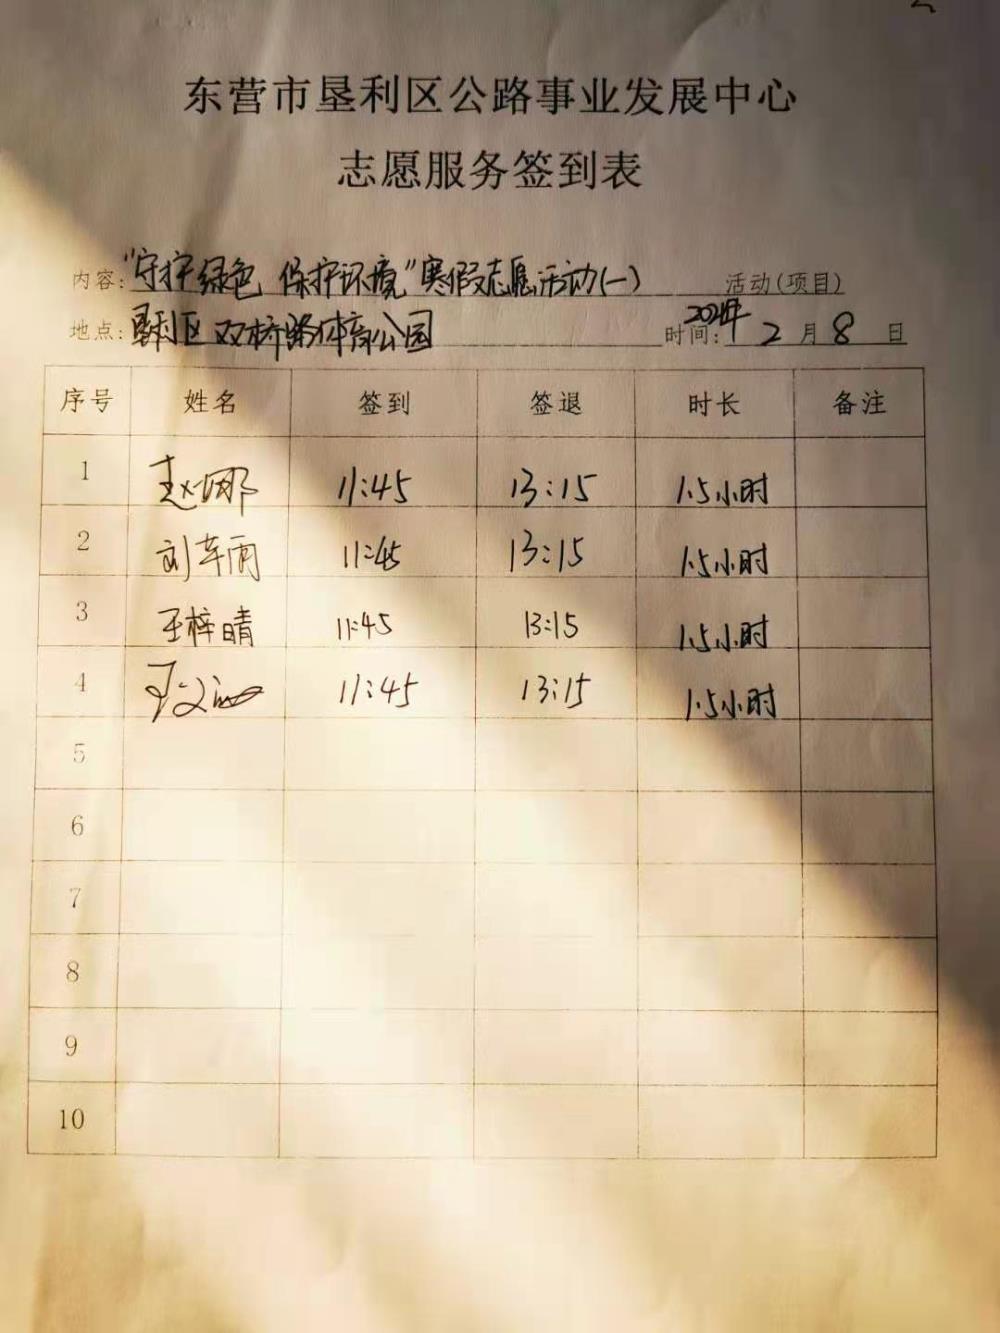 东营市垦利区公路事业发展中心
志愿服务签到表
内容:"守护绿色 保护环境"寒假志愿活动(一) 活动(项目)
地点:垦利区双桥路体育公园 时间:2024年2月8日
序号 姓名 签到 签退 时长 备注
1 赵娜 11:45 13:15 1.5小时
2 刘芊雨 11:45 13:15 1.5小时
3 王梓晴 11:45 13:15 1.5小时
4 11:45 13:15 1.5小时
5
6
7
8
9
10